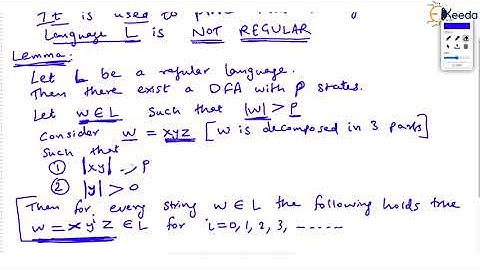 It is used to
Language L is NOT REGULAR
Keeda
Lemma:
Let L be a regular language.
Then there exist a DFA with P states.
Let w∈L such that |w| > P
Consider w = xyz [w is decomposed in 3 parts]
Such that
① |xy| P
② |y| > 0
Then for every string w∈L the following holds true
w = x yⁱ z ∈ L for i=0,1,2,3, -----